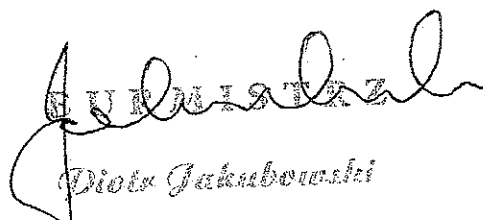 BURMISTRZ
Piotr Jakubowski